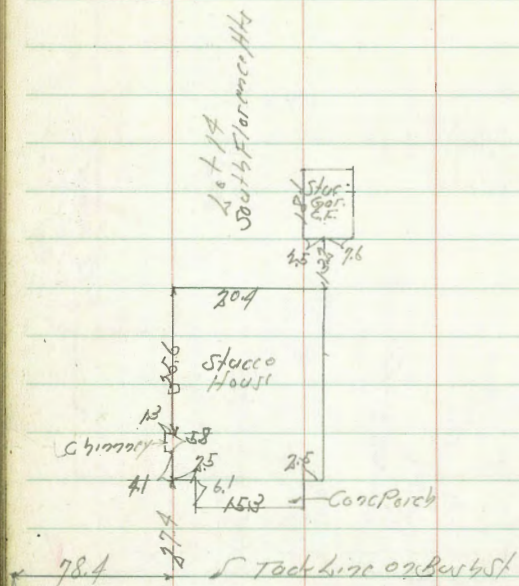 Lot 14
South Florence Hts
Stuc.
Gar.
C.F.
18.1
2.5
7.6
20.4
Stucco
House
1.3
Chimney
5.8
2.5
4.1
6.1
2.5
15.3
Conc Porch
27.4
78.4
Tack Line on Bush St